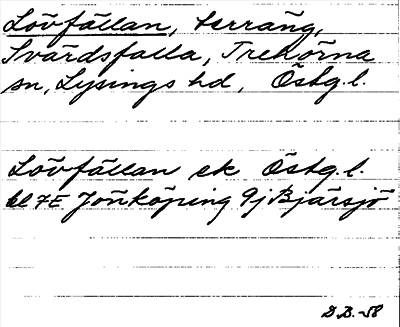 Lövfällan, terräng,
Svärdsfalla, Trehörna
sn, Lysings hd, Östg. l.
Lövfällan ek Östg. l.
bl 7E Jönköping 9j Bjärsjö
D.B. -58